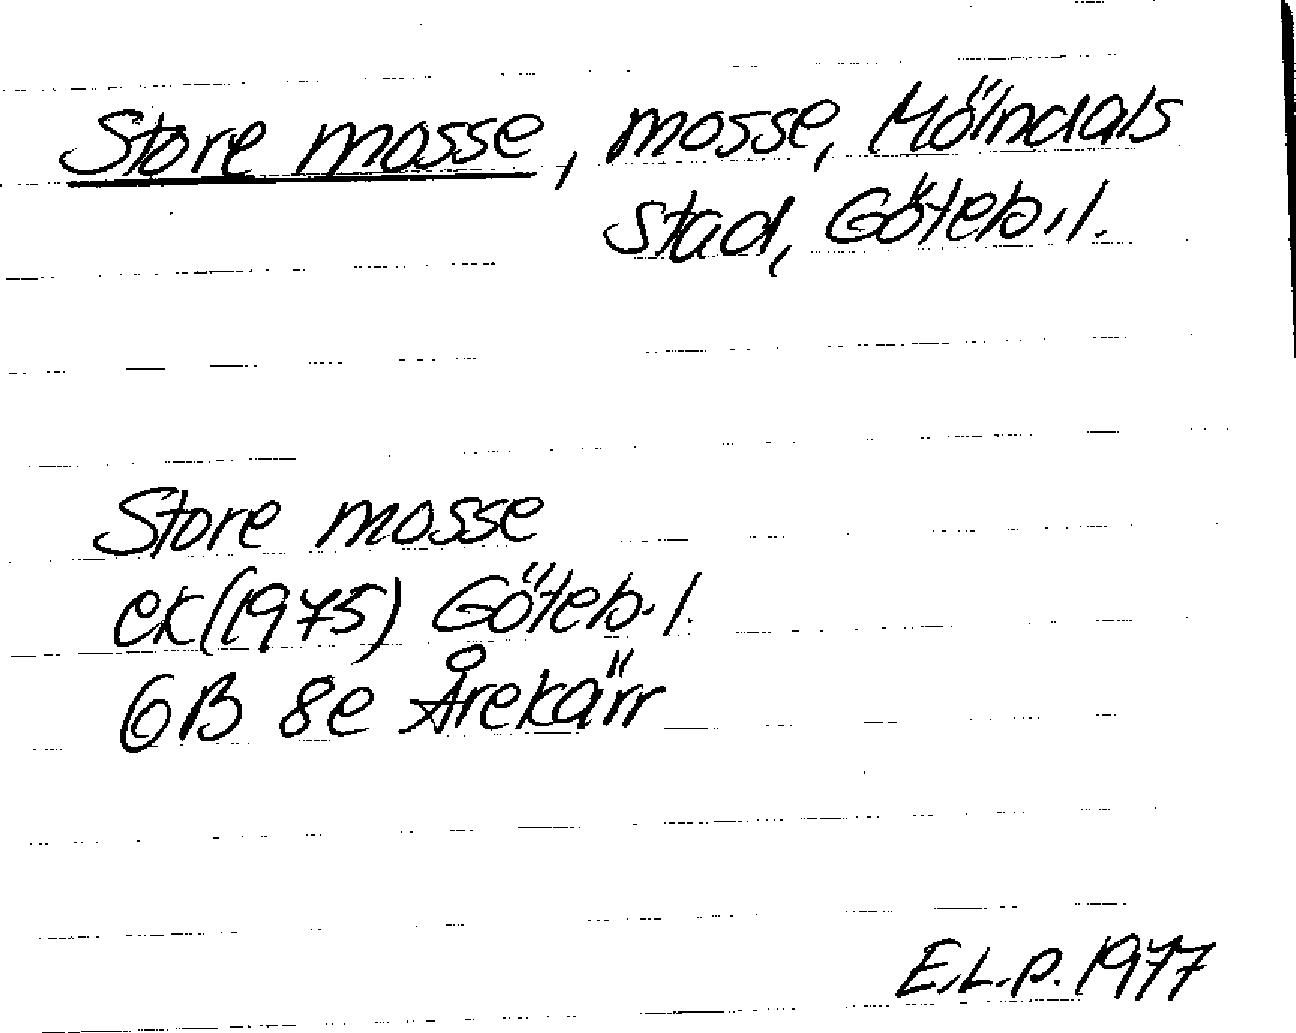 Store mosse, mosse, Mölndals
stad, Göteb.l.
Store mosse
ek (1975) Göteb.l.
6B 8e Årekärr
E.L.P. 1977